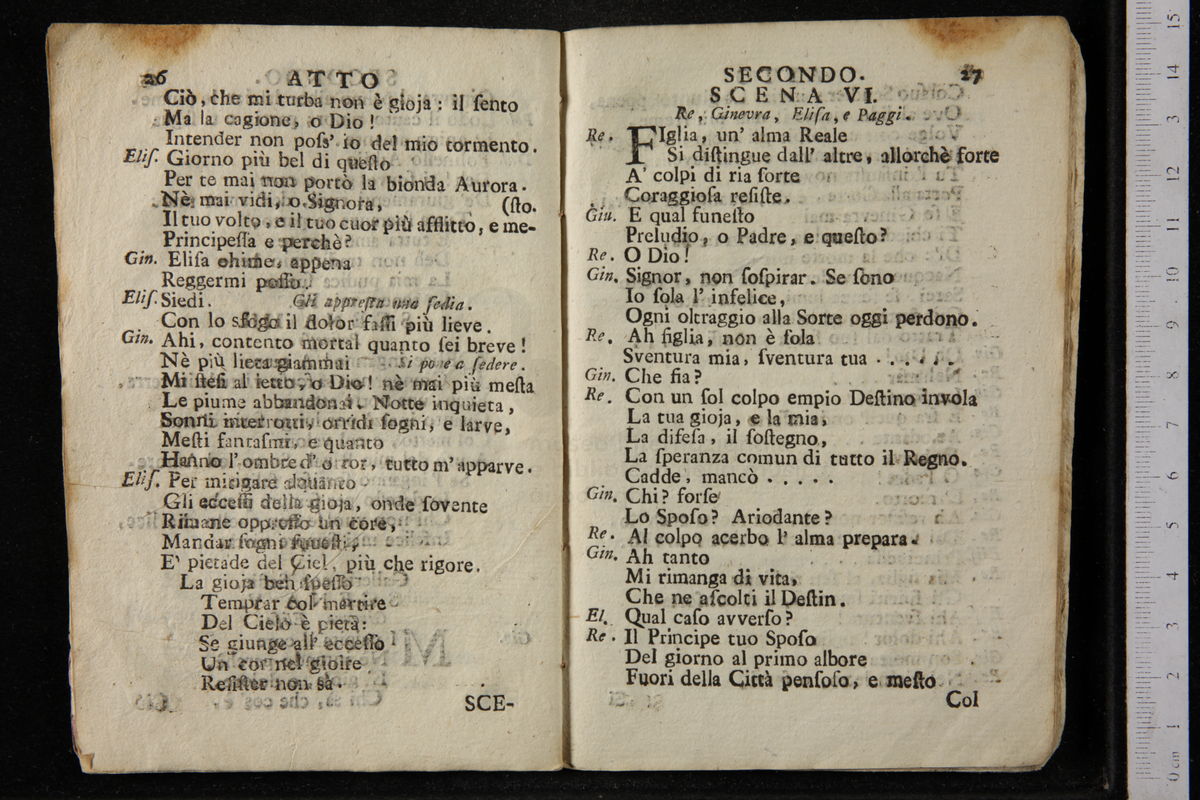 26 ATTO
Ciò, che mi turba non è gioja: il ſento
Ma la cagione, o Dio!
Intender non poſſ' io del mio tormento.
Eliſ. Giorno più bel di queſto
Per te mai non portò la bionda Aurora.
Nè mai vidi, o Signora, (ſto.
Il tuo volto, e il tuo cuor più afflitto, e me-
Principeſſa e perchè?
Gin. Eliſa ohime, appena
Reggermi poſſo.
Eliſ. Siedi. Gli appreſta una ſedia.
Con lo sfogo il dolor faſſi più lieve.
Gin. Ahi, contento mortal quanto ſei breve!
Nè più lieta giammai Si pone a ſedere.
Mi ſteſi al letto, o Dio! nè mai più meſta
Le piume abbandonai. Notte inquieta,
Sonni interrotti, orridi ſogni, e larve,
Meſti fantaſmi, e quanto
Hanno l'ombre d' orror, tutto m'apparve.
Eliſ. Per mitigare alquanto
Gli ecceſſi della gioja, onde ſovente
Rimane oppreſſo un core,
Mandar ſogni funeſti,
E' pietade del Ciel, più che rigore.
La gioja ben ſpeſſo
Temprar col martire
Del Cielo è pietà:
Se giunge all' ecceſſo
Un cor nel gioire
Reſiſter non sà.
SCE-
SECONDO. 27
SCENA VI.
Re, Ginevra, Eliſa, e Paggi.
Re. FIglia, un' alma Reale
Si diſtingue dall' altre, allorchè forte
A' colpi di ria ſorte
Coraggioſa reſiſte.
Gin. E qual funeſto
Preludio, o Padre, e queſto?
Re. O Dio!
Gin. Signor, non ſoſpirar. Se ſono
Io ſola l' infelice,
Ogni oltraggio alla Sorte oggi perdono.
Re. Ah figlia, non è ſola
Sventura mia, ſventura tua . . . . .
Gin. Che fia?
Re. Con un ſol colpo empio Deſtino invola
La tua gioja, e la mia,
La difeſa, il ſoſtegno,
La ſperanza comun di tutto il Regno.
Cadde, mancò . . . . .
Gin. Chi? forſe
Lo Spoſo? Ariodante?
Re. Al colpo acerbo l' alma prepara.
Gin. Ah tanto
Mi rimanga di vita,
Che ne aſcolti il Deſtin.
El. Qual caſo avverſo?
Re. Il Principe tuo Spoſo
Del giorno al primo albore
Fuori della Città penſoſo, e meſto
Col